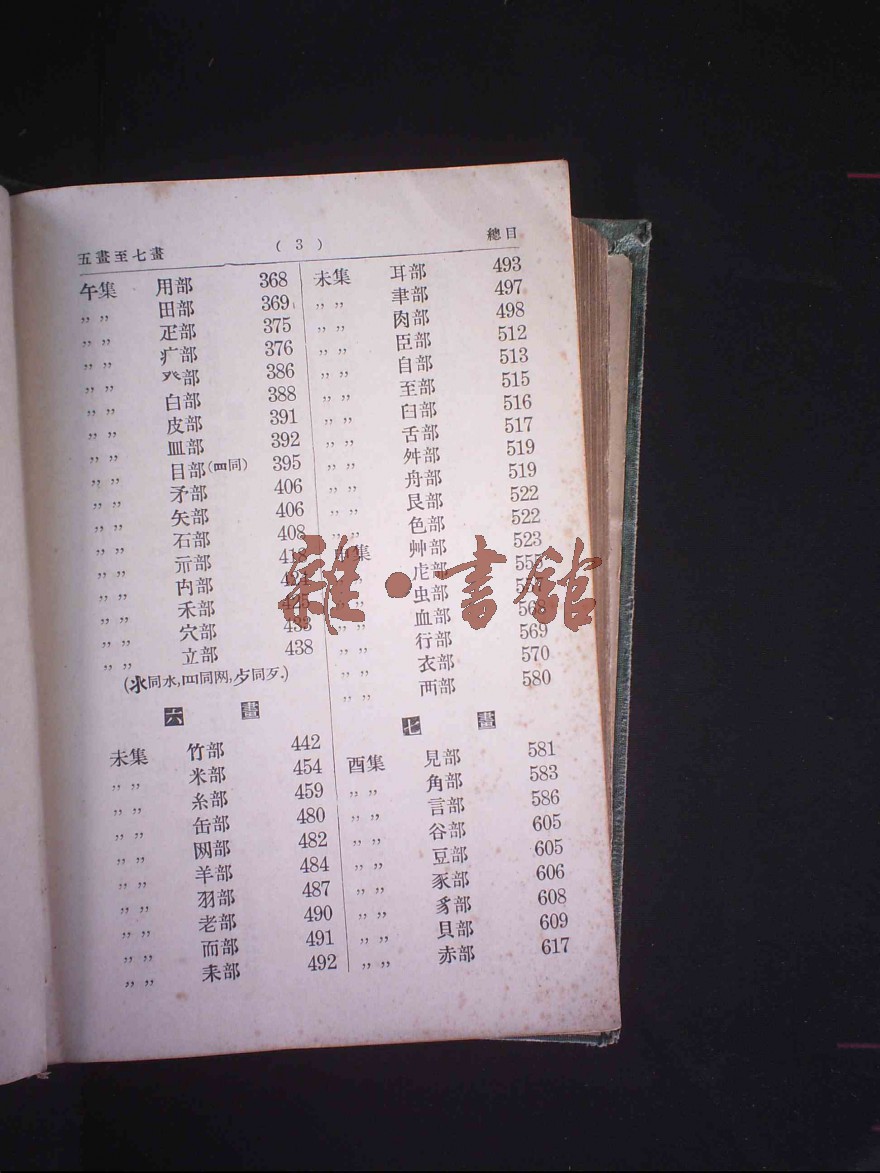 五畫至七畫 (3) 總目
午集 用部 368
” ” 田部 369
” ” 疋部 375
” ” 疒部 376
” ” 癶部 386
” ” 白部 388
” ” 皮部 391
” ” 皿部 392
” ” 目部(罒同) 395
” ” 矛部 406
” ” 矢部 406
” ” 石部 408
” ” 示部 418
” ” 禸部 421
” ” 禾部 425
” ” 穴部 433
” ” 立部 438
(氺同水,罒同网,歺同歹.)
六畫
未集 竹部 442
” ” 米部 454
” ” 糸部 459
” ” 缶部 480
” ” 网部 482
” ” 羊部 484
” ” 羽部 487
” ” 老部 490
” ” 而部 491
” ” 耒部 492
未集 耳部 493
” ” 聿部 497
” ” 肉部 498
” ” 臣部 512
” ” 自部 513
” ” 至部 515
” ” 臼部 516
” ” 舌部 517
” ” 舛部 519
” ” 舟部 519
” ” 艮部 522
” ” 色部 522
申集 艸部 523
” ” 虍部 555
” ” 虫部
” ” 血部 568
” ” 行部 569
” ” 衣部 570
” ” 襾部 580
七畫
酉集 見部 581
” ” 角部 583
” ” 言部 586
” ” 谷部 605
” ” 豆部 605
” ” 豕部 606
” ” 豸部 608
” ” 貝部 609
” ” 赤部 617
雜·書館